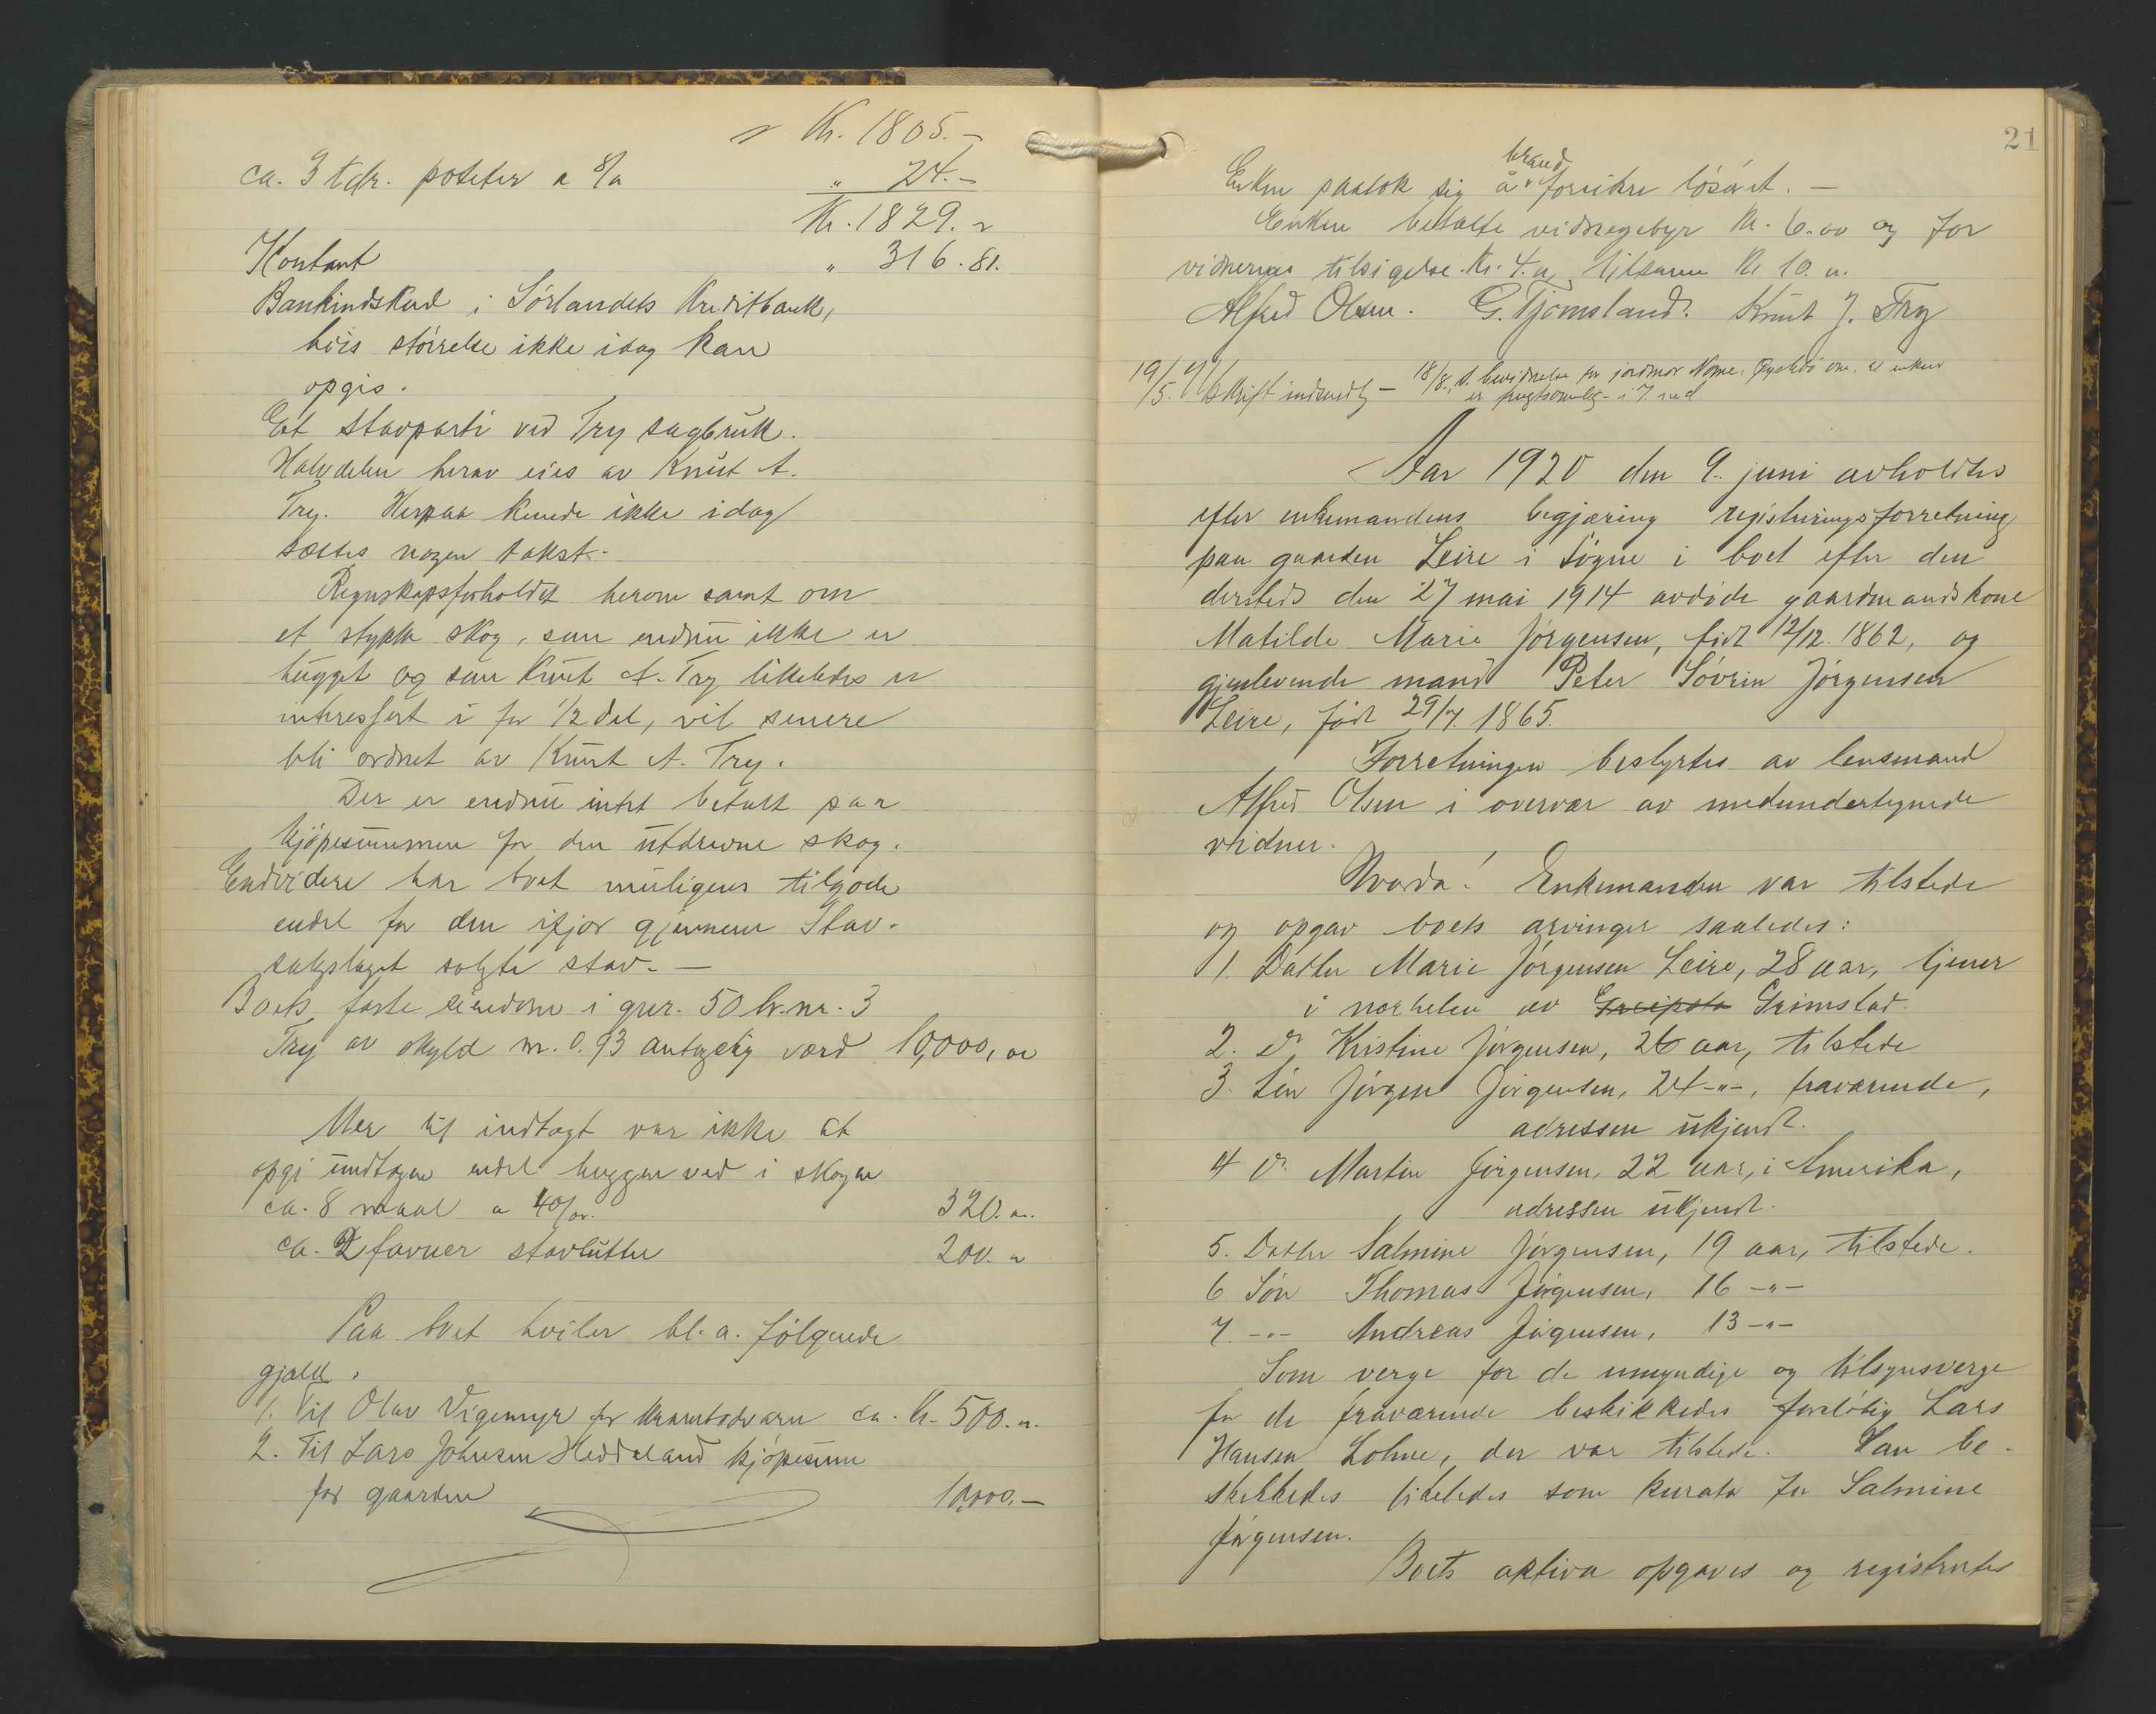 Kr. 1805.-
ca. 3 tdr. poteter a 8/a " 24.-
Kr. 1829.-
Kontant " 316.81.
Bankindskud i Sörlandets Kreditbank,
hvis störrelse ikke idag kan
opgis.
Et stavparti ved Try sagbruk.
Halvdelen herav eies av Knut A.
Try. Herpaa kunde ikke idag
sættes nogen takst.-
Regnskapsforholdet herom samt om
et stykke skog, som endnu ikke er
hugget og som Knut A. Try likeledes er
interessert i for 1/2 del, vil senere
bli ordnet av Knut A. Try.
Der er endnu intet betalt paa
kjöpesummen for den utdrevne skog.
Endvidere har boet muligens tilgode
endel for den ifjor gjennem Stav-
salgslaget solgte stav.-
Boets faste eiendom i gnr. 50 br.nr. 3
Try av skyld m. 0.93 antagelig værd 10,000,00
Mer til indtægt var ikke at
opgi undtagen endel huggen ved i skogen
ca. 8 maal a 40/00. 320.00.
ca. 2 favner stavkutter 200.00
Paa boet hviler bl.a. fölgende
gjæld.
1. Til Olav Vigemyr for kramtodvarer ca. Kr. 500.00.
2. Til Lars Johnsen Heddeland kjöpesum
for gaarden 10,000.-
21
brand
Enken paatok sig å forsikre lösöret.-
Enken betalte vidnegebyr Kr. 6.00 og for
vidnernes tilsigelse Kr. 4.00, tilsammen Kr 10.00.
Alfred Olsen. G. Tjomsland. Knut J. Try
19/5. Utskrift indsendt - 18/8. s. bevidnelse fra jordmor om at enken
er frugtsommelig - i 7. md
Aar 1920 den 9. juni avholdtes
efter enkemandens begjæring registreringsforretning
paa gaarden Leire i Sögne i boet efter den
dersteds den 27 mai 1914 avdöde gaardmandskone
Matilde Marie Jörgensen, födt 12/12. 1862, og
gjenlevende mand Peter Sövrin Jörgensen
Leire, födt 29/7 1865.
Forretningen bestyrtes av lensmand
Alfred Olsen i overvær av medundertegnede
vidner.
Hvorda! Enkemanden var tilstede
og opgav boets arvinger saaledes:
1. Datter Marie Jörgensen Leire, 28 aar, tjener
i nærheten av Greipsta Grimstad.
2. Do Kristine Jörgensen, 26 aar, tilstede
3. Sön Jörgen Jörgensen, 24 -"-, fraværende,
adressen ukjendt.
4 Do Martin Jörgensen, 22 aar, i Amerika,
adressen ukjendt.
5. Datter Salmine Jörgensen, 19 aar, tilstede.
6 Sön Thomas Jörgensen, 16 -"-
7 -"- Andreas Jörgensen, 13 -"-
Som verge for de umyndige og tilsynsverge
for de fraværende beskikkedes forelöbig Lars
Hansen Lohne, der var tilstede. Han be-
skikkedes likeledes som kurator for Salmine
Jörgensen.
Boets aktiva opgaves og registrertes